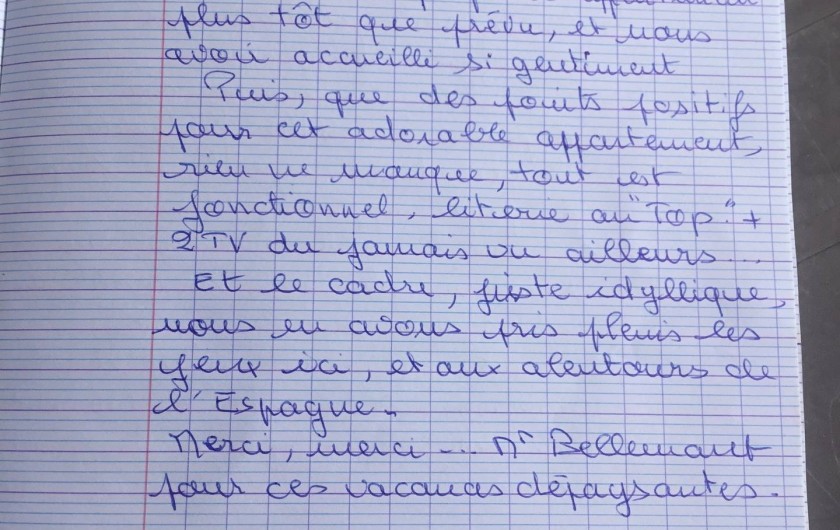 plus tôt que prévu, et nous
avoir accueilli si gentiment
Puis, que des points positifs
pour cet adorable appartement,
rien ne manque, tout est
fonctionnel, literie au "Top" +
2 TV du jamais vu ailleurs...
Et le cadre, juste idyllique,
nous en avons pris pleins les
yeux ici, et aux alentours de
l'Espagne.
Merci, merci... Mr Bellemant
pour ces vacances dépaysantes.